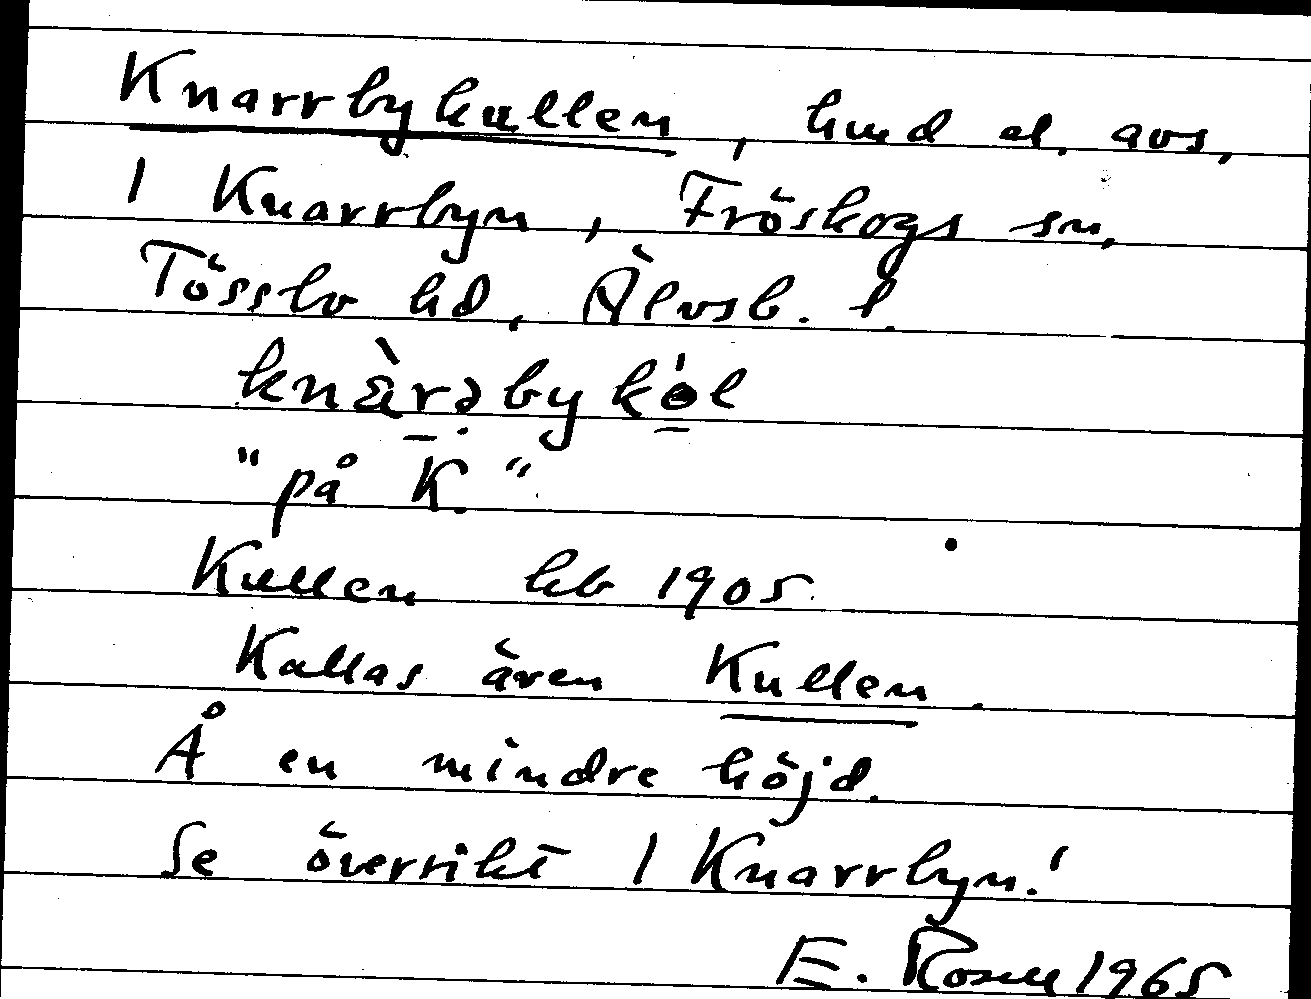 Knarrbykullen, hmd el. avs,
1 Knarrbyn, Fröskogs sn,
Tössbo hd, Älvsb. l.
knàrəbykól
"på K."
Kullen hb 1905.
Kallas även Kullen.
Å en mindre höjd.
Se översikt 1 Knarrbyn!
E. Rosell 1965